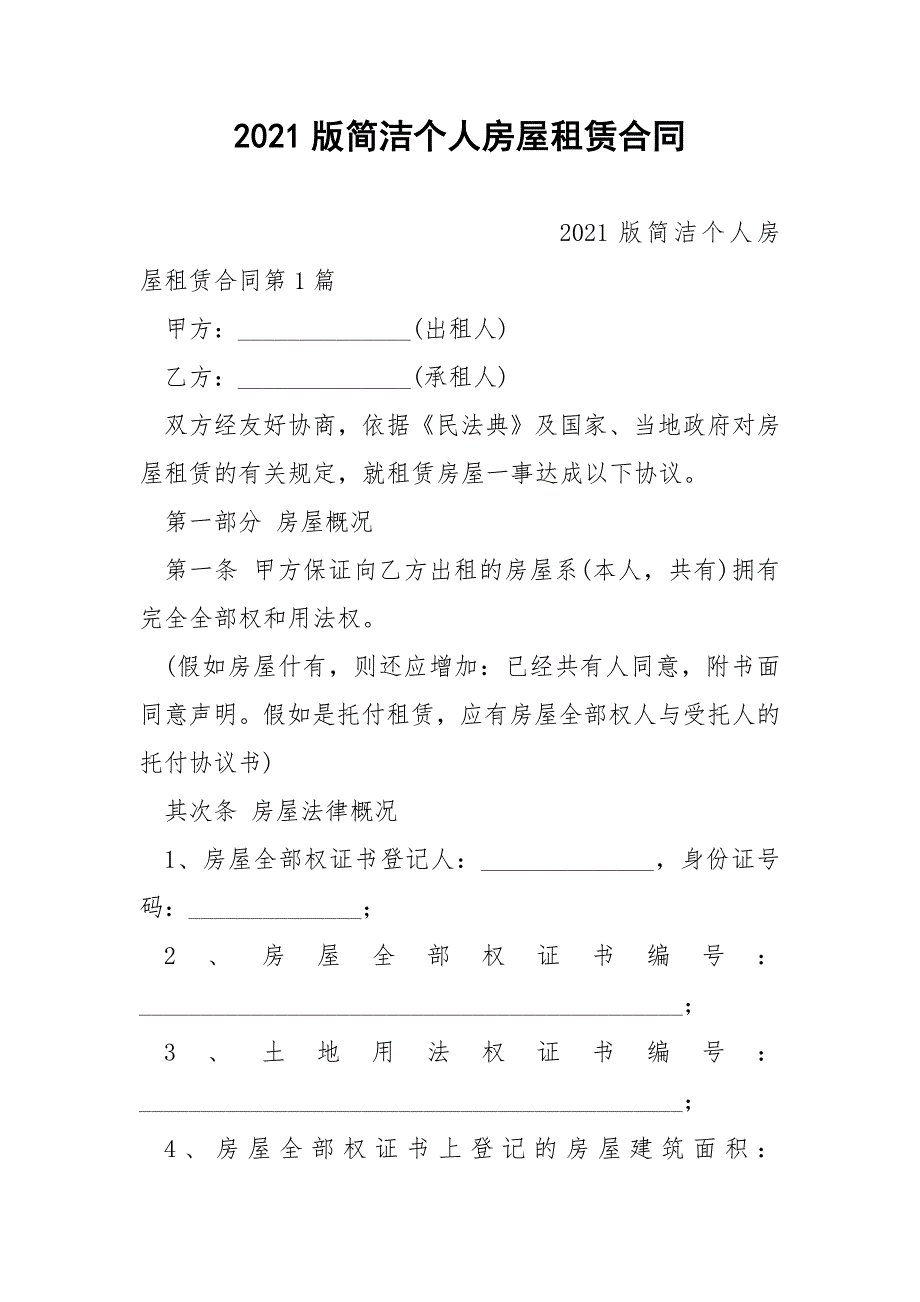 2021版简洁个人房屋租赁合同
2021版简洁个人房
屋租赁合同第1篇
甲方：______________(出租人)
乙方：______________(承租人)
双方经友好协商，依据《民法典》及国家、当地政府对房
屋租赁的有关规定，就租赁房屋一事达成以下协议。
第一部分 房屋概况
第一条 甲方保证向乙方出租的房屋系(本人，共有)拥有
完全全部权和用法权。
(假如房屋什有，则还应增加：已经共有人同意，附书面
同意声明。假如是托付租赁，应有房屋全部权人与受托人的
托付协议书)
其次条 房屋法律概况
1、房屋全部权证书登记人：______________，身份证号
码：______________；
2、房屋全部权证书编号：
____________________________________________；
3、土地用法权证书编号：
____________________________________________；
4、房屋全部权证书上登记的房屋建筑面积：